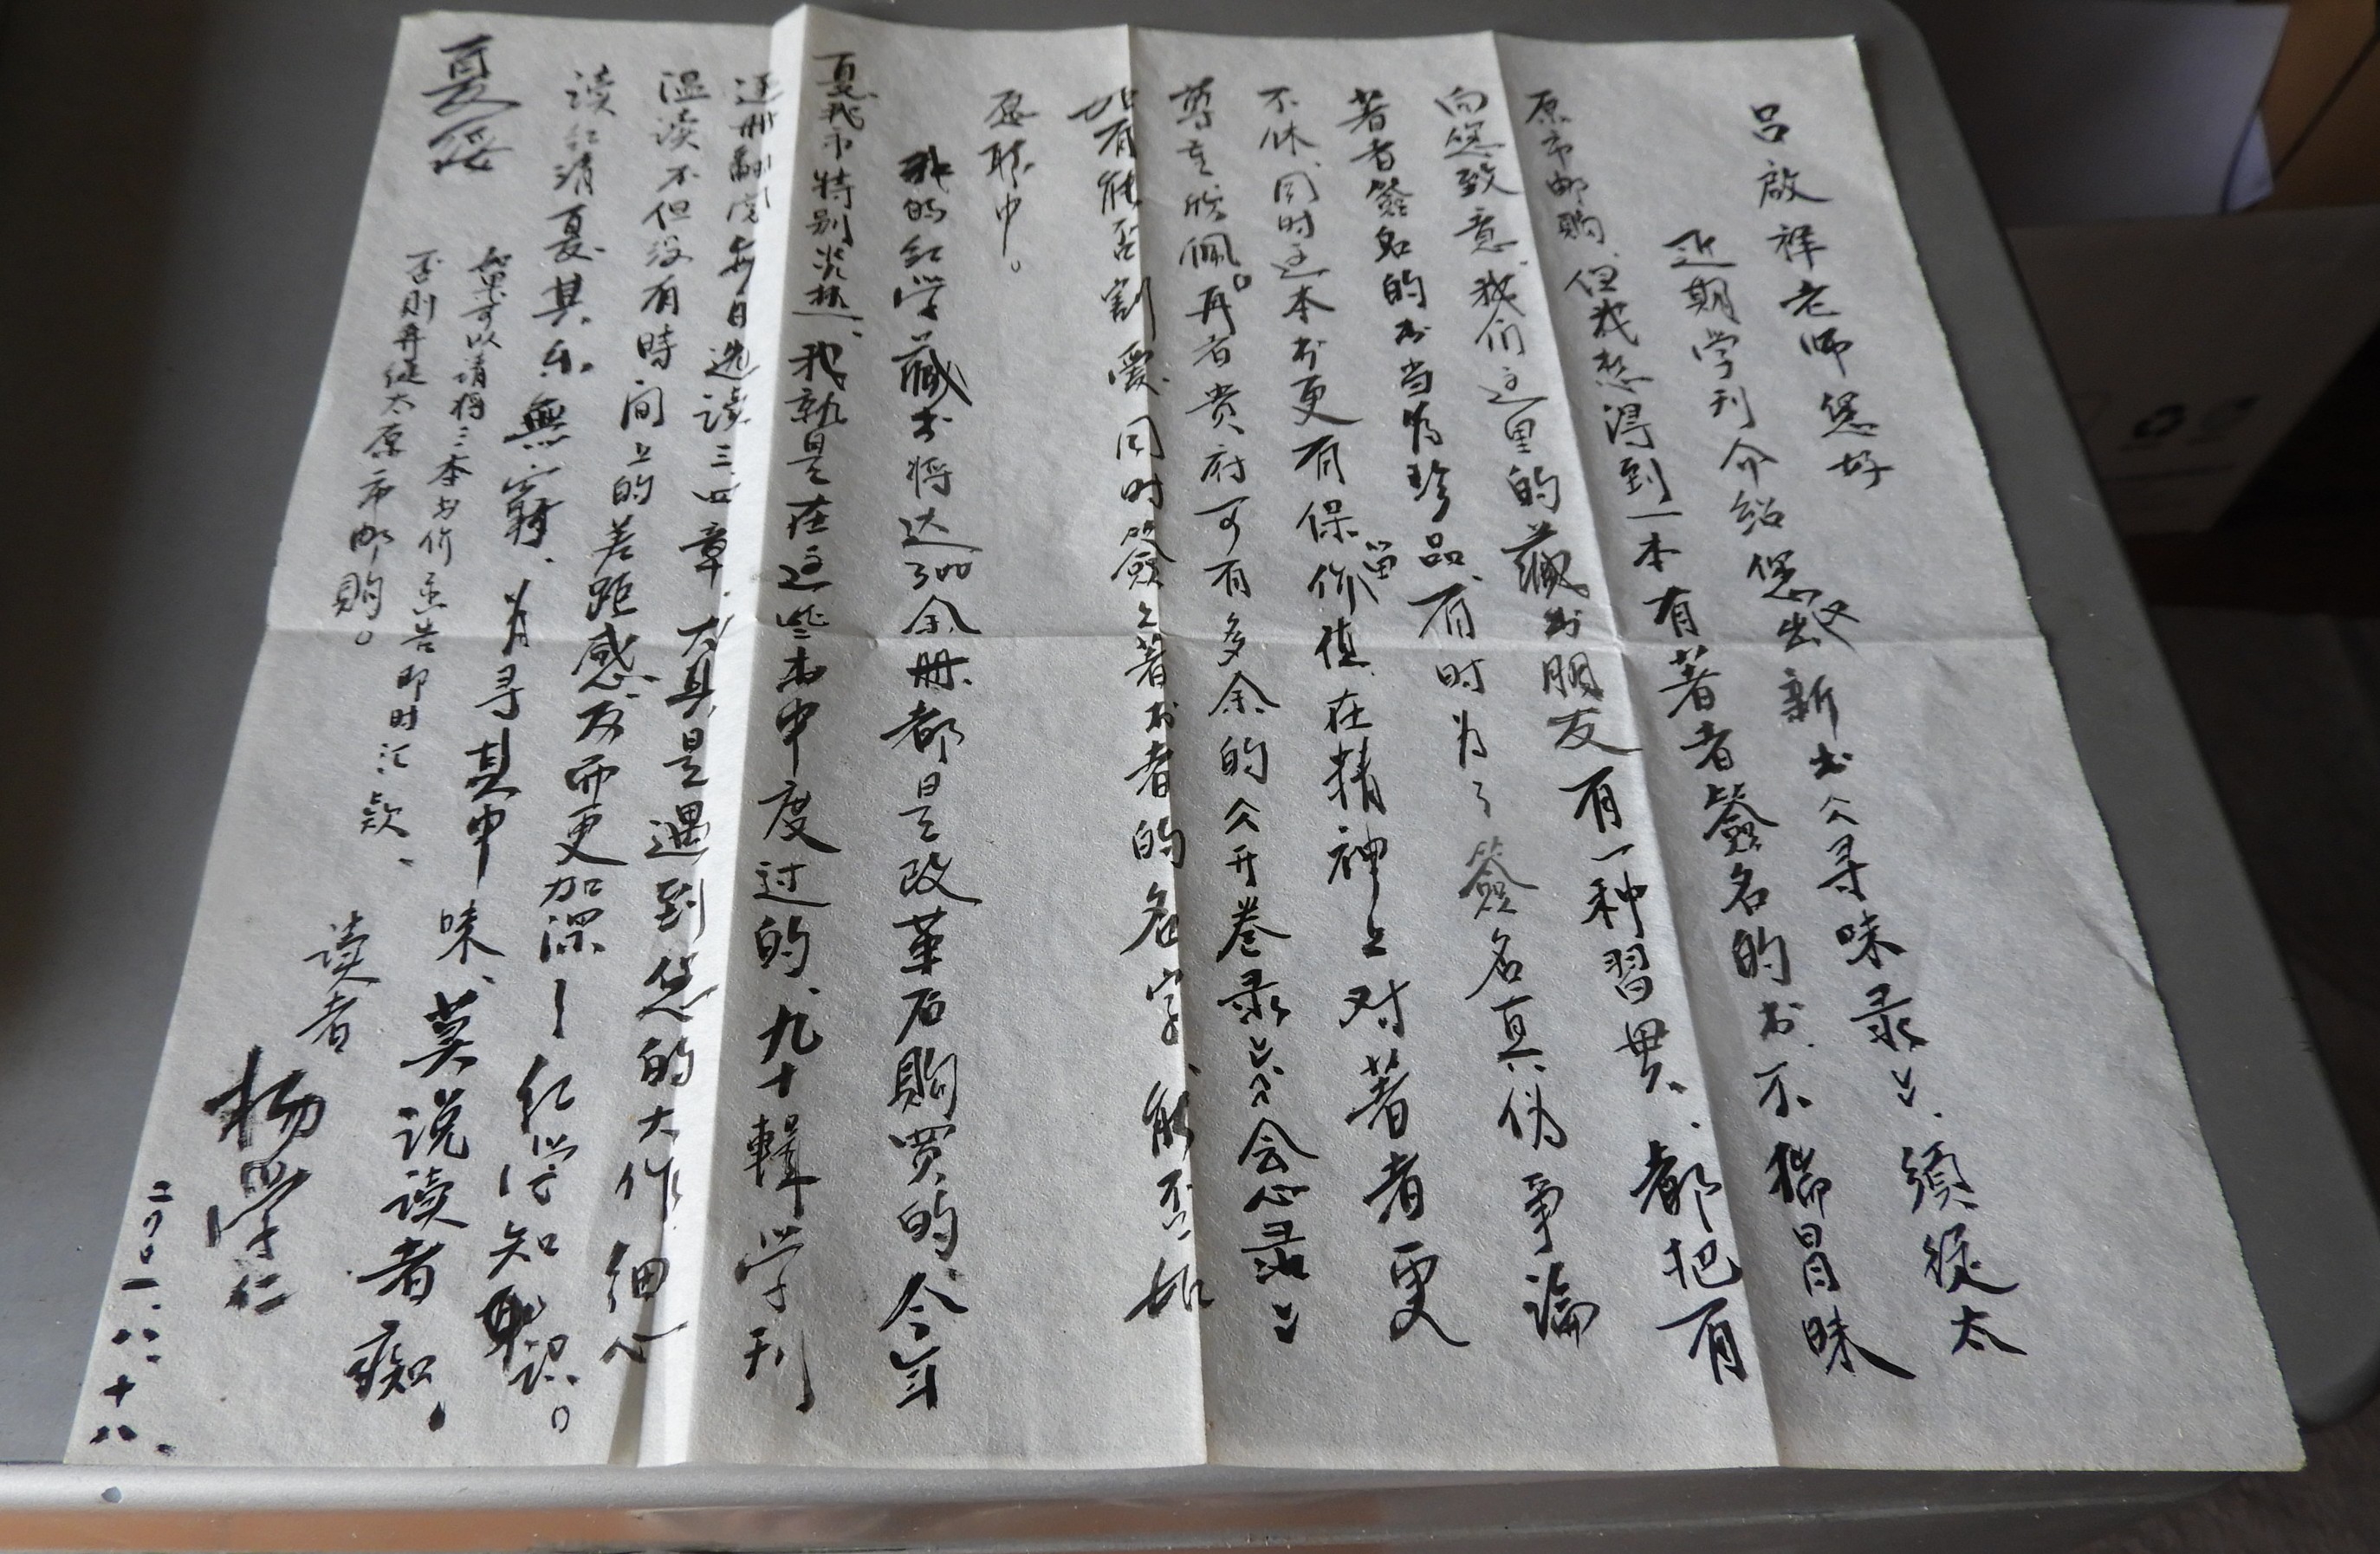 吕啟祥老师您好
近期学刊介绍您又出新书《寻味录》、须从太
原市邮购、但我想得到一本有著者签名的书、不揣冒昧
向您致意、我们这里的藏书朋友有一种习贯、都把有
著者签名的书当为珍品、有时为了签名真伪争论
不休、同时这本书更有保留价值、在精神上对著者更
尊重钦佩。再者贵府可有多余的《开卷录》《会心录》
如有能否割爱、同时签上著书者的名字、能否、如
愿聴中。
我的红学藏书将达300余册、都是改革后购买的、今年
夏我市特别炎热、我就是在这些书中度过的、九十輯学刊
逐册翻阅每日选读三四章、尤其是遇到您的大作、细心
温读不但没有時间上的差距感、反而更加深了红学知识。
读红消夏其乐無窮、为寻其中味、莫说读者痴、
夏綏
如果可以请将三本书价示告即时汇款、
否则再从太原市邮购。
读者
杨学仁
二〇〇一.八.十八.